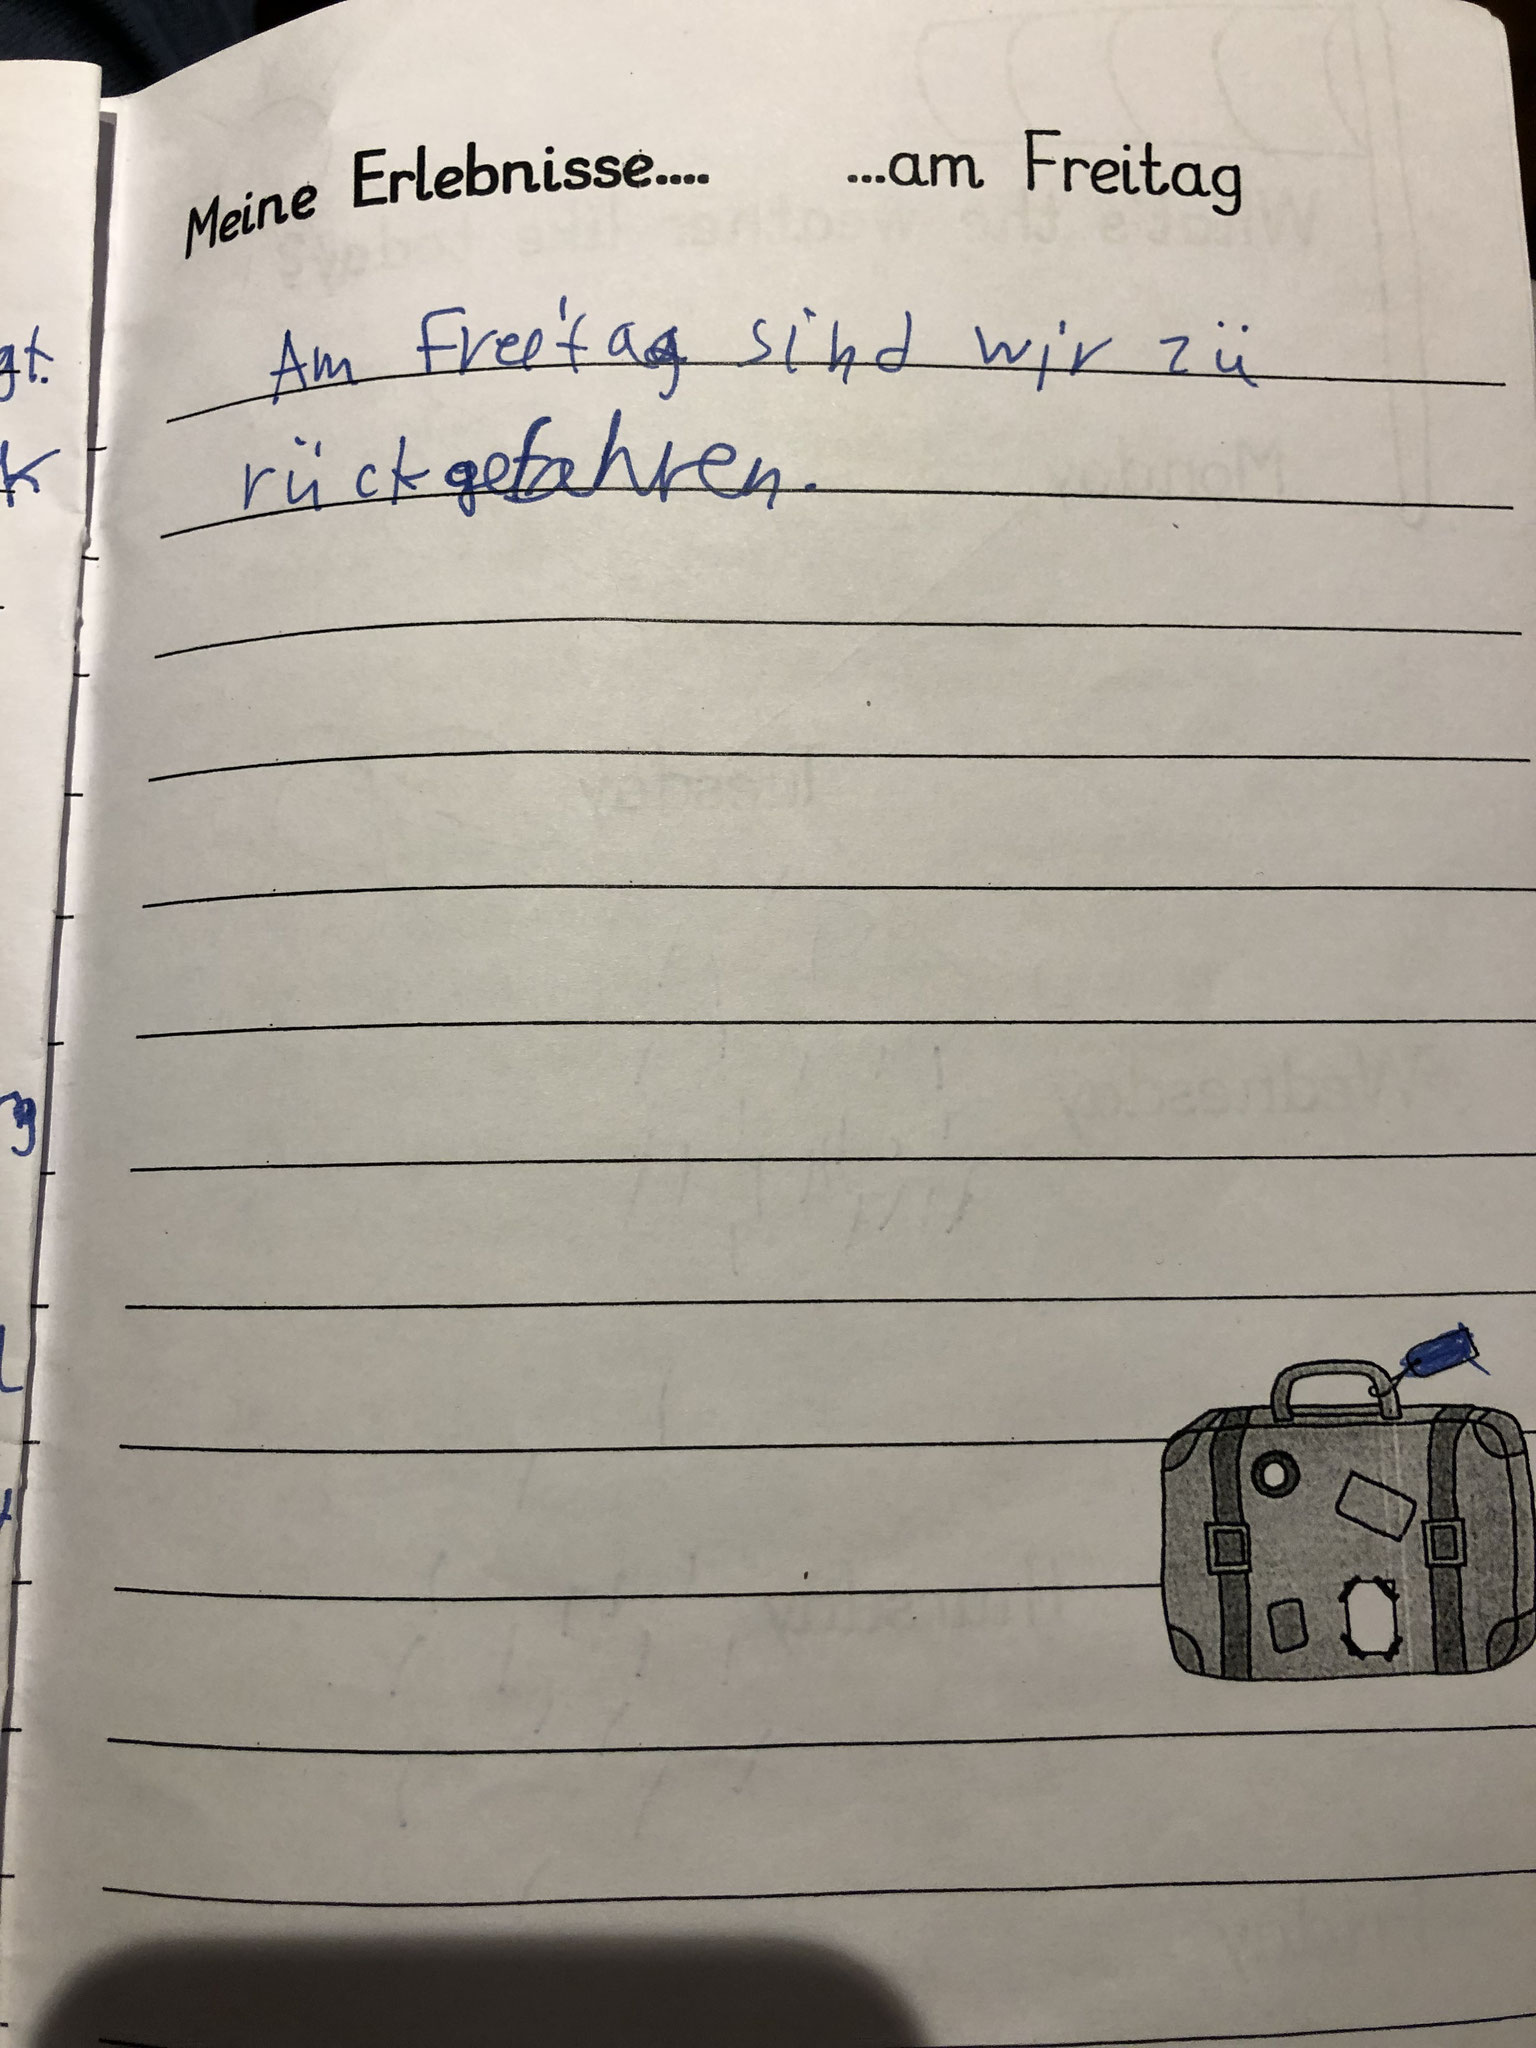 Meine Erlebnisse.... ...am Freitag
Am Freitag sind wir zü
rückgefahren.
gt.
k
g